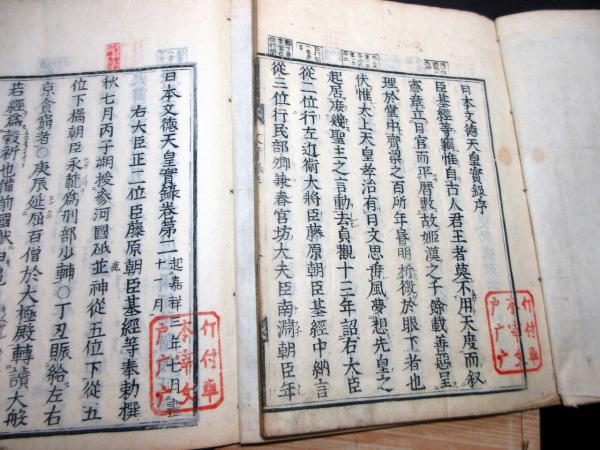 日本文徳天皇實錄序
臣基經等竊惟自古人君王者莫不用天度而敘
憲章立日官而平曆數故姬漢之千餘載善惡
理於掌中齊梁之百所年昏明祈徵於眼下者也
伏惟太上天皇孝治有日文思垂風夢想先皇之
起居庶幾聖主之言動去貞觀十三年詔右大臣
從二位行左近衛大將臣藤原朝臣基經中納言
從三位行民部卿兼春宮坊大夫臣南淵朝臣年
日本文徳天皇實錄卷第二 起嘉祥三年七月盡十二月
右大臣正二位臣藤原朝臣基經等奉勅撰
秋七月丙子朔授參河國砥並神從五位下從五
位下橘朝臣永範爲刑部少輔〇丁丑賑給左右
京貪窮者〇庚辰延屈百僧於大極殿轉讀大般
若經爲穀祈也備前國獻白